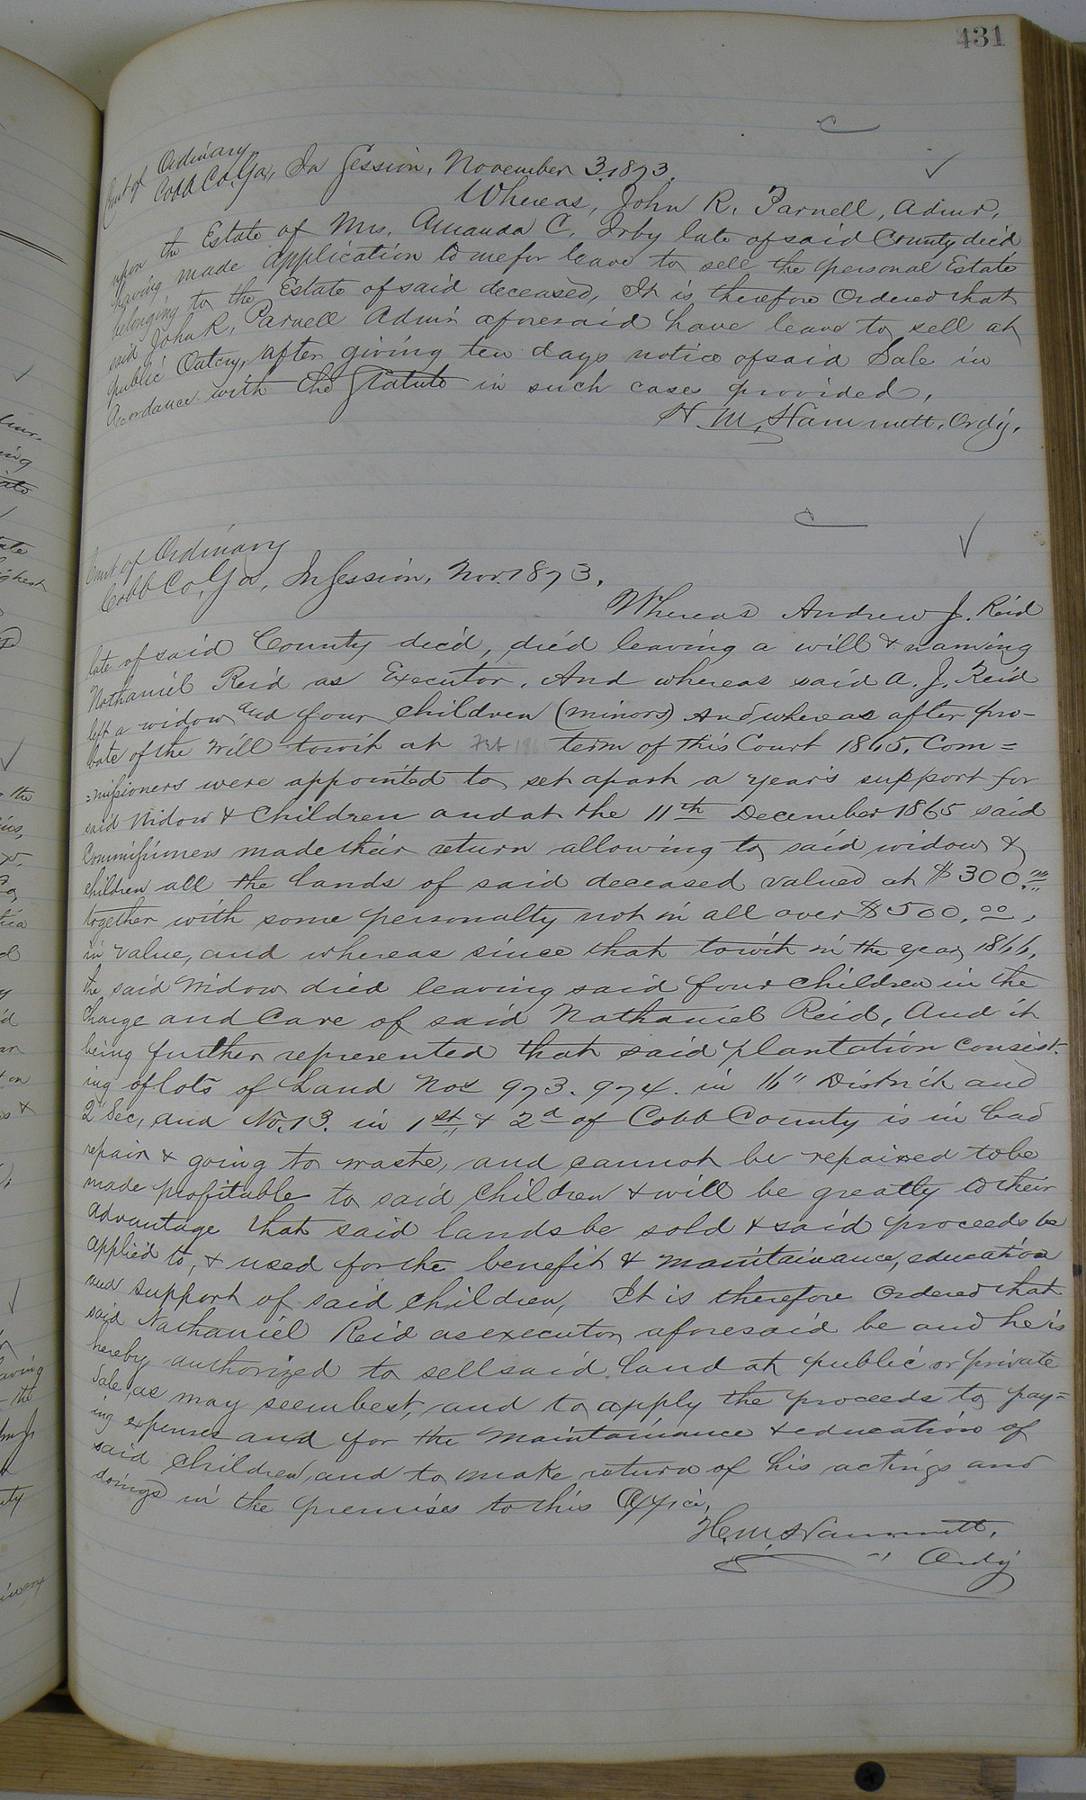 431
Court of Ordinary
Cobb Co, Ga, In Session, November 3, 1873.
Whereas, John R. Parnell, Admr,
upon the Estate of Mrs. Amanda C. Irby late of said County dec'd
having made application to me for leave to sell the personal Estate
belonging to the Estate of said deceased, It is therefore Ordered that
said John R. Parnell Admr aforesaid have leave to sell at
public Outcry, after giving ten days notice of said Sale in
Accordance with the Statute in such case provided,
H. M. Hammett, Ordy.
Court of Ordinary
Cobb Co, Ga, In Session, Nov. 1873.
Whereas Andrew J. Reid
late of said County dec'd, died leaving a will & naming
Nathaniel Reid as Executor, And whereas said A. J. Reid
left a widow and four children (minors) And whereas after pro-
bate of the Will towit at Feb term of this Court 1865, Com=
=missioners were appointed to set apart a year's support for
said Widow & Children and at the 11th December 1865 said
Commissioners made their return allowing to said widow &
children all the lands of said deceased valued at $300.00
together with some personalty not in all over $500.00,
in value, and whereas since that towit in the year 1866,
the said Widow died leaving said four children in the
charge and Care of said Nathaniel Reid, And it
being further represented that said plantation consist-
ing of lots of Land Nos 973. 974. in 16" District and
2" Sec, and No. 13. in 1st & 2d of Cobb County is in bad
repair & going to waste, and cannot be repaired to be
made profitable to said children & will be greatly to their
advantage that said lands be sold & said proceeds be
applied to, & used for the benefit & maintainance, education
and support of said children, It is therefore Ordered that
said Nathaniel Reid as executor aforesaid be and he is
hereby authorized to sell said land at public or private
Sale, as may seem best, and to apply the proceeds to pay=
ing expenses and for the maintainance & education of
said children, and to make return of his actings and
doings in the premises to this Office,
H. M. Hammett,
Ordy